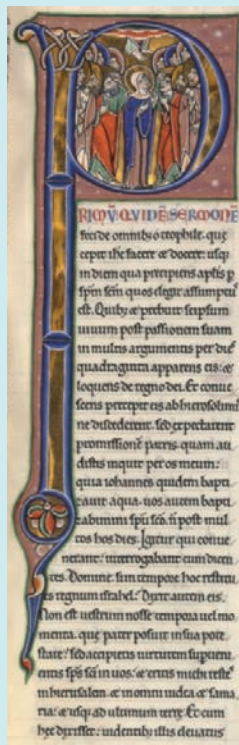 PRIMŪ QVIDĒ SERMONĒ
feci de omnibȝ o theophile. que
cepit ihc facere & docere: usqȝ
in diem qua precipiens aptis p
spm scm quos elegit assumptus
est. Quibȝ & prebuit seipsum
uiuum post passionem suam
in multis argumentis per dies
quadraginta apparens eis: &
loquens de regno dei. Et conue
scens precepit eis ab hierosolimi
ne discederent. sed expectarent
promissionē patris. quam au
distis inquit per os meum:
quia iohannes quidem bapti
zauit aqua. uos autem bapti
zabimini spu sco. ñ post mul
tos hos dies. Igitur qui conue
nerant: interrogabant eum dicen
tes. Domine. si in tempore hoc restitu
es regnum israhel? Dixit autem eis.
Non est uestrum nosse tempora uel mo
menta. que pater posuit in sua pote
state: sed accipietis uirtutem superueni
entis sps sci in uos. & eritis michi testes
in hierusalem & in omni iudea & sama
ria: & usqȝ ad ultimum terre. Et cum
hec dixisset: uidentibȝ illis eleuatus